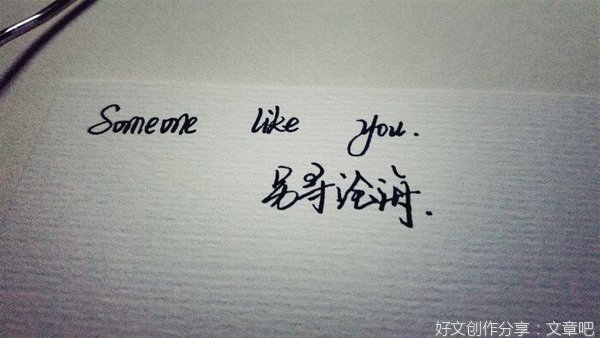 Someone like you.
另寻沧海.
好文创作分享：文章吧